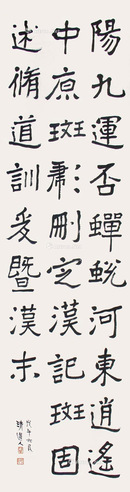 陽九運否蟬蛻河東逍遙
中原斑彪刪定漢記斑固
述脩道訓爰暨漢末
戊午六月
清道人